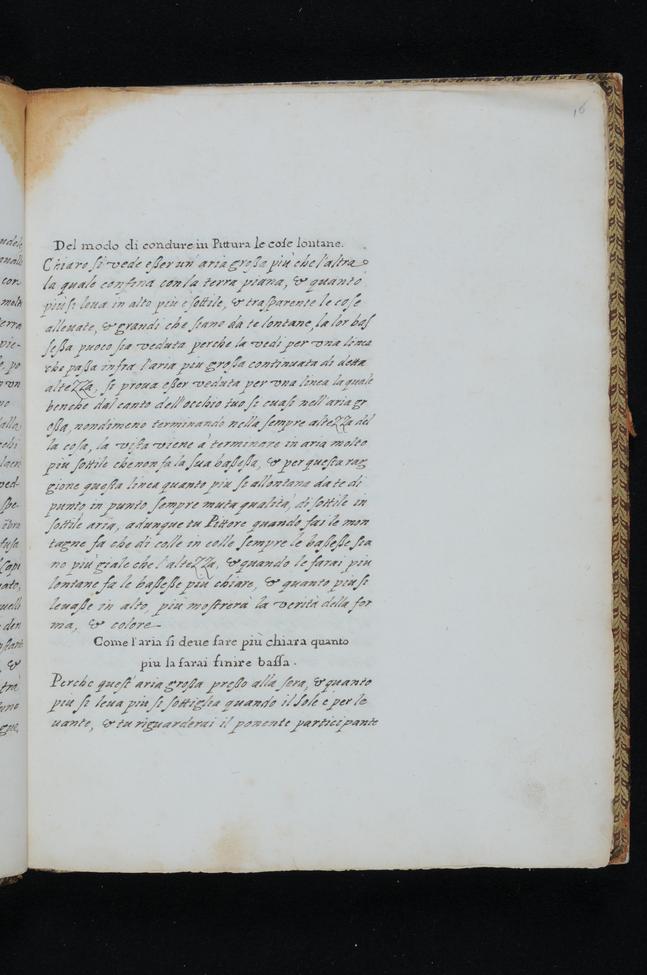 16
Del modo di condure in Pittura le cose lontane.
Chiaro si vede esser un' aria grossa più che l'altra
la quale confina con la terra piana, & quanto
più si leva in alto più è sottile, & trasparente le cose
allevate, & grandi che siano da te lontane, la lor bas
sessa puoco sia veduta perche la vedi per una linea
che passa infra l'aria piu grossa continuata di detta
altezza, si prova esser veduta per una linea la quale
benche dal canto dell'occhio tuo si cuasi nell'aria gr
ossa, nondimeno terminando nella sempre altezza del
la cosa, la vista viene à terminare in aria molto
piu sottile che non fa la sua bassessa, & per questa rag
gione questa linea quanto piu si allontana da te di
punto in punto sempre muta qualità, di sottile in
sottile aria, adunque tu Pittore quando fai le mon
tagne fa che di colle in colle sempre le bassesse sia
no più giale che l'altezza, & quando le farai piu
lontane fa le bassesse piu chiare, & quanto piu si
levasse in alto, piu mostrerà la verità della for
ma, & colore
Come l'aria si deve fare più chiara quanto
piu la farai finire bassa.
Perche quest' aria grossa presso alla sera, & quanto
piu si leva piu si sottiglia quando il sole è per le
vante, & tu riguarderai il ponente participante